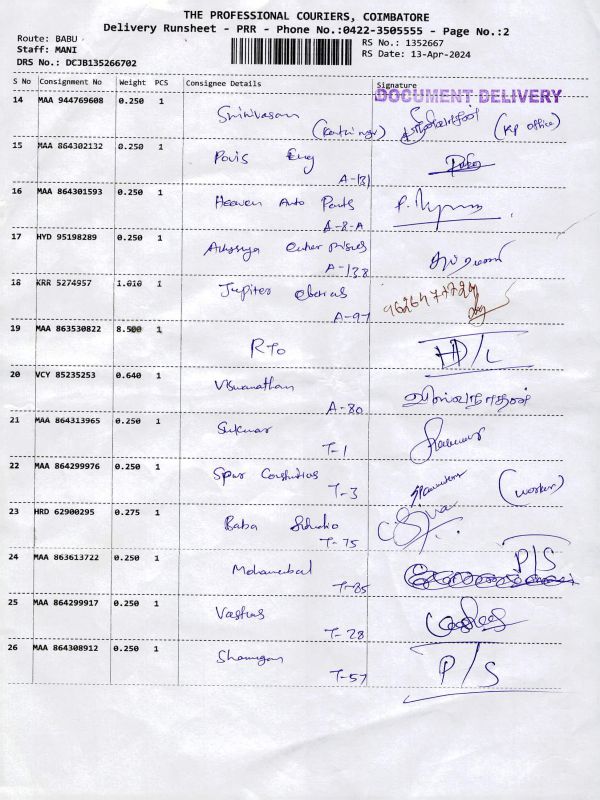 THE PROFESSIONAL COURIERS, COIMBATORE
Delivery Runsheet - PRR - Phone No.:0422-3505555 - Page No.:2
Route: BABU
Staff: MANI
DRS No.: DCJB135266702
RS No.: 1352667
RS Date: 13-Apr-2024
S No Consignment No Weight PCS Consignee Details Signature
DOCUMENT DELIVERY
14 MAA 944769608 0.250 1 Srinivasan (KP office)
15 MAA 864302132 0.250 1 Povis Eng
A-131
16 MAA 864301593 0.250 1 Heaven Auto Parts
A-8-A
17 HYD 95198289 0.250 1
A-138
18 KRR 5274957 1.010 1 Jupiter
A-97
19 MAA 863530822 8.500 1 RTO
20 VCY 85235253 0.640 1 Viswanathan விஸ்வநாதன்
A-80
21 MAA 864313965 0.250 1 Sukumar
T-1
22 MAA 864299976 0.250 1 Spar (worker)
T-3
23 HRD 62900295 0.275 1 Baba Studio
T-75
24 MAA 863613722 0.250 1 P/S
T-85
25 MAA 864299917 0.250 1
T-28
26 MAA 864308912 0.250 1 Shanmugam P/S
T-57